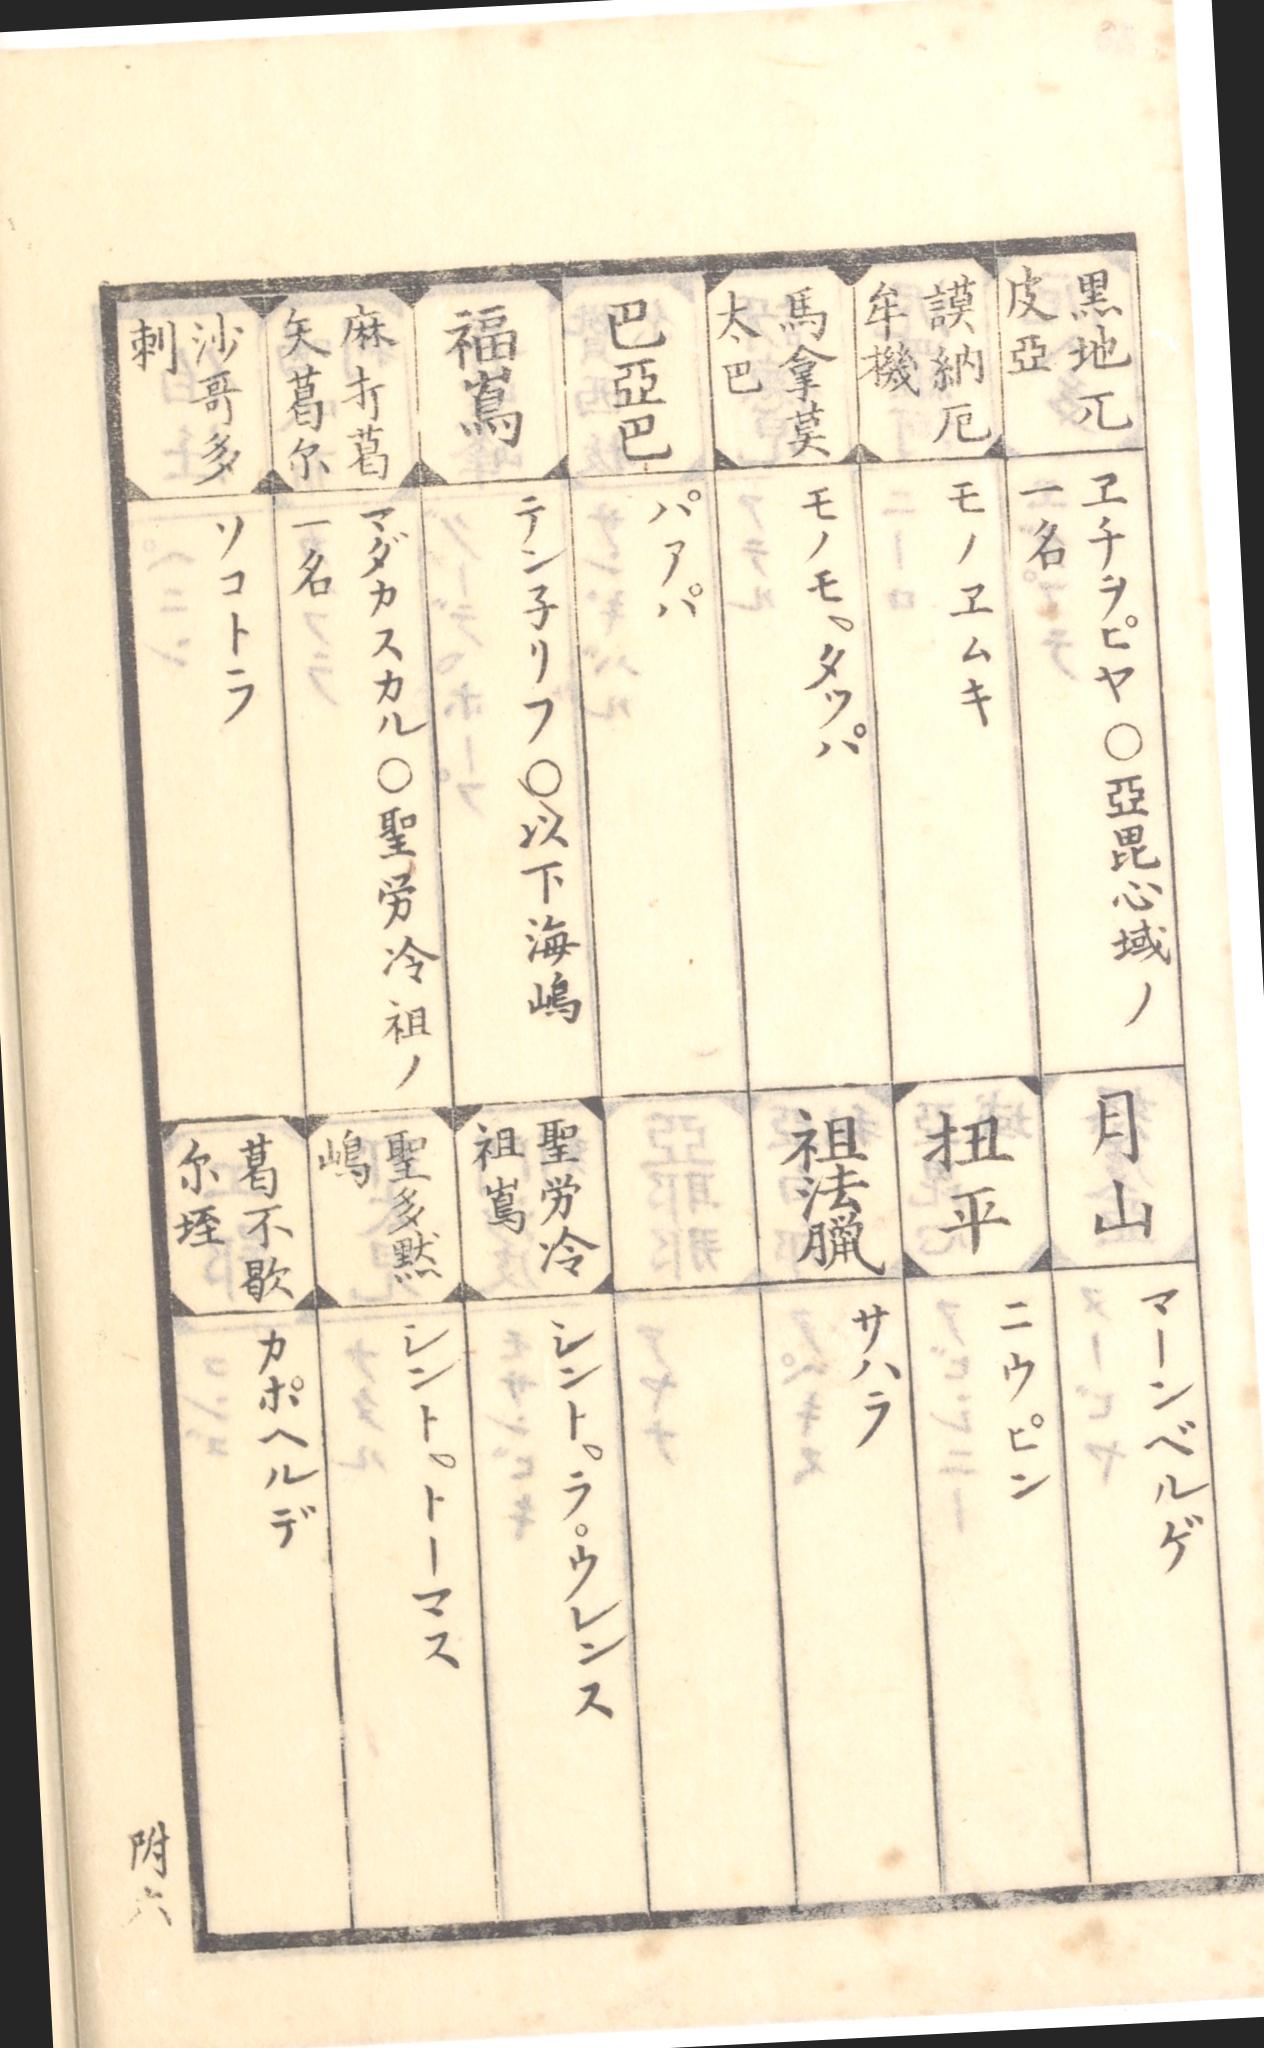 黒地兀
皮亞
ヱチヲピヤ〇亞毘心域ノ
一名
月山
マーンベルゲ
謨納厄
牟機
モノヱムキ
扭平
ニウピン
馬拿莫
太巴
モノモ゜タッパ
祖法臘
サハラ
巴亞巴
パアパ
福嶌
テン子リフ〇以下海嶋
聖労冷
祖嶌
シント゜ラ゜ウレンス
麻打葛
矢葛尓
マダカスカル〇聖労冷祖ノ
一名
聖多黙
嶋
シント゜トーマス
沙哥多
剌
ソコトラ
葛不歇
尓垤
カポヘルデ
附六